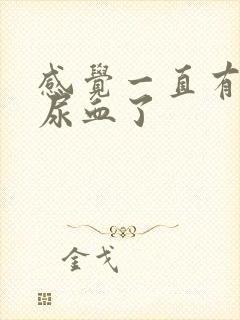 感覺一直有
尿血了
金戈